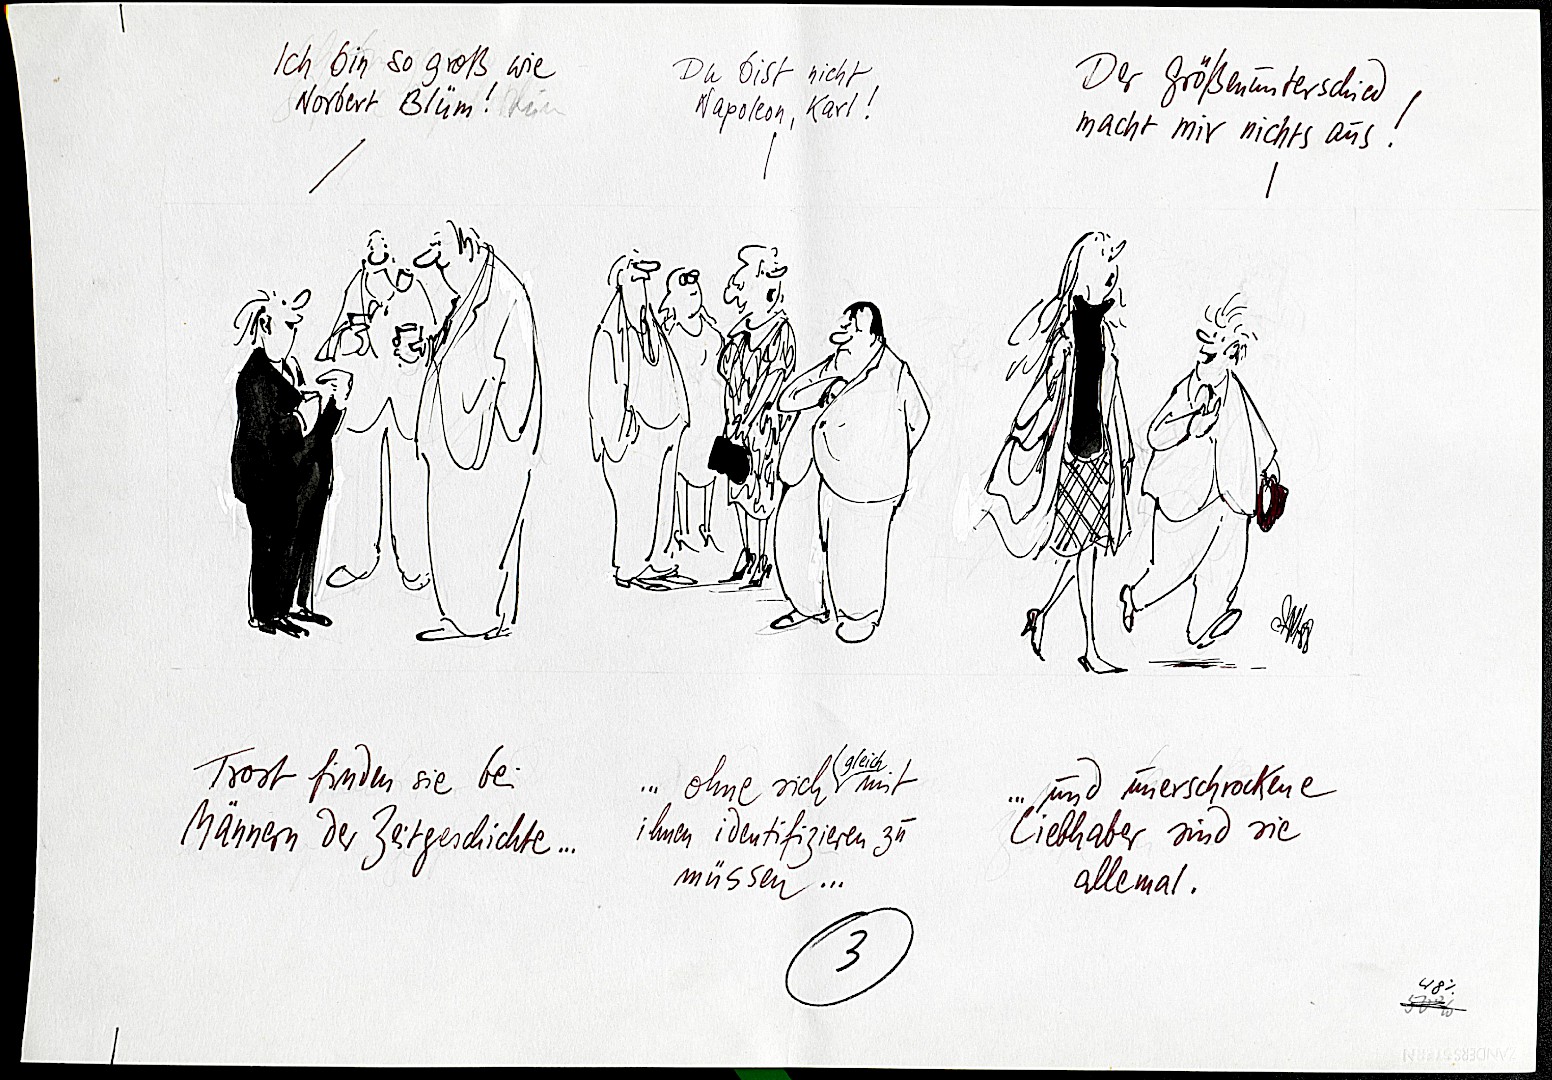 Ich bin so groß wie
Norbert Blüm!
Du bist nicht
Napoleon, Karl!
Der Größenunterschied
macht mir nichts aus!
Trost finden sie bei
Männern der Zeitgeschichte...
... ohne sich gleich mit
ihnen identifizieren zu
müssen ...
... und unerschrockene
Liebhaber sind sie
allemal.
3
48%